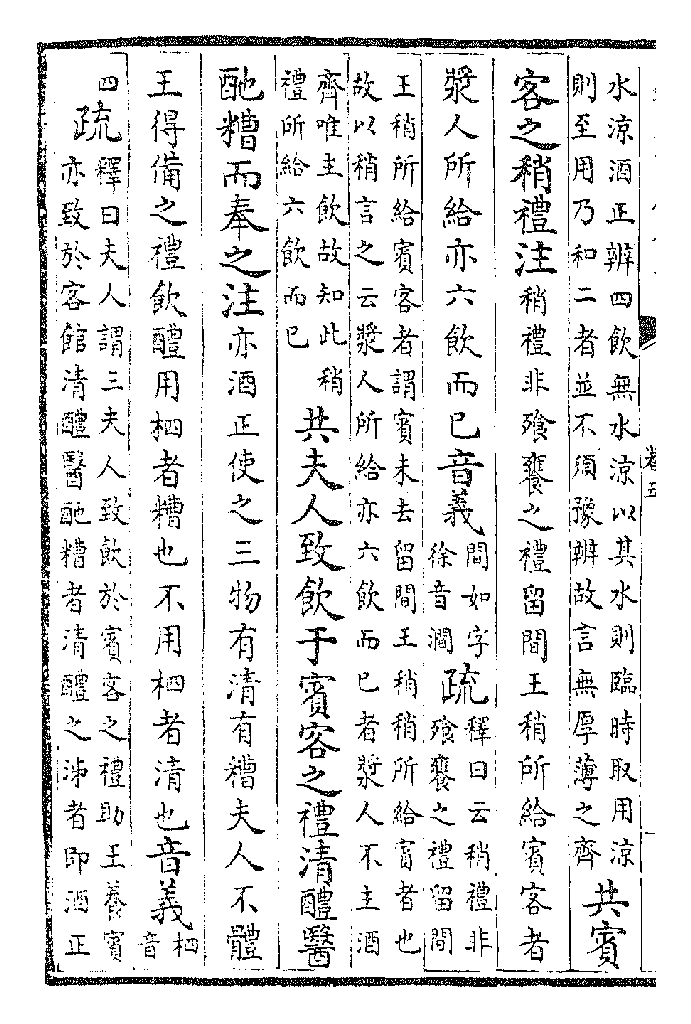 水涼酒正辨四飲無水涼以其水則臨時取用涼
則至用乃和二者並不須豫辦故言無厚薄之齊
共賓
客之稍禮注稍禮非飧饔之禮留間王稍所給賓客者
漿人所給亦六飲而已音義
間如字
徐音澗
疏
釋曰云稍禮非
飧饔之禮留間
王稍所給賓客者謂賓未去留間王稍稍所給賓者也
故以稍言之云漿人所給亦六飲而已者漿人不主酒
齊唯主飲故知此稍
禮所給六飲而已
共夫人致飲于賓客之禮清醴醫
酏糟而奉之注亦酒正使之三物有清有糟夫人不體
王得備之禮飲醴用柶者糟也不用柶者清也音義
柶
音
四
疏
釋曰夫人謂三夫人致飲於賓客之禮助王養賓
亦致於客館清醴醫酏糟者清醴之泲者即酒正
卷五